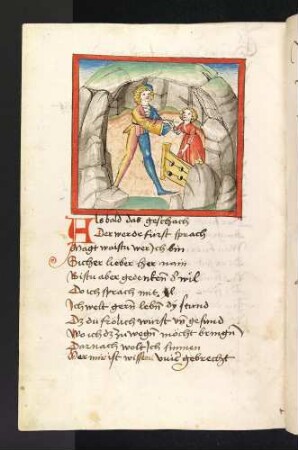 Als bald das geschach
Der werde fürst sprach
Magt waistu wer Ich bin
Sicher lieber her nain
Bistu aber gedencken d' wil
Do ich sprach mit
Ich welt gern lebn dy stund
Dz du frölich wurst vn gesund
Wo ich dz zu wegn möcht bringn
Darnach wolt Ich sinnen
Her mir ist wissen gebrecht